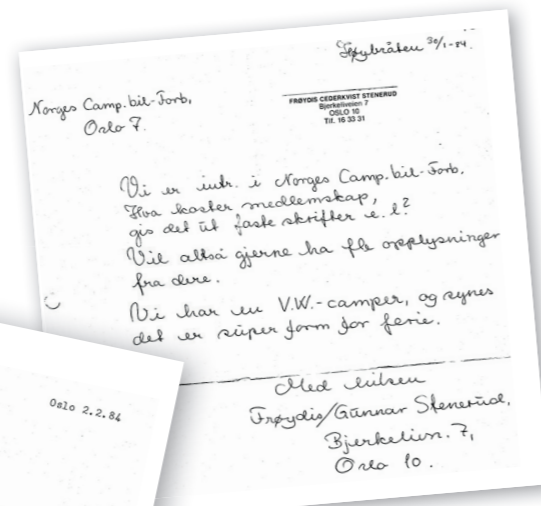 Høybråten 30/1-84.
Norges Camp.bil-Forb,
Oslo 7.
FRØYDIS CEDERKVIST STENERUD
Bjerkeliveien 7
OSLO 10
Tlf. 16 33 31
Vi er intr. i Norges Camp.bil-Forb.
Hva koster medlemskap,
gis det ut faste skrifter e.l?
Vil altså gjerne ha fle opplysninger
fra dere.
Vi har en V.W.-camper, og synes
det er süper form for ferie.
Med hilsen
Frøydis/Gunnar Stenerud,
Bjerkelivn. 7,
Oslo 10.
Oslo 2.2.84